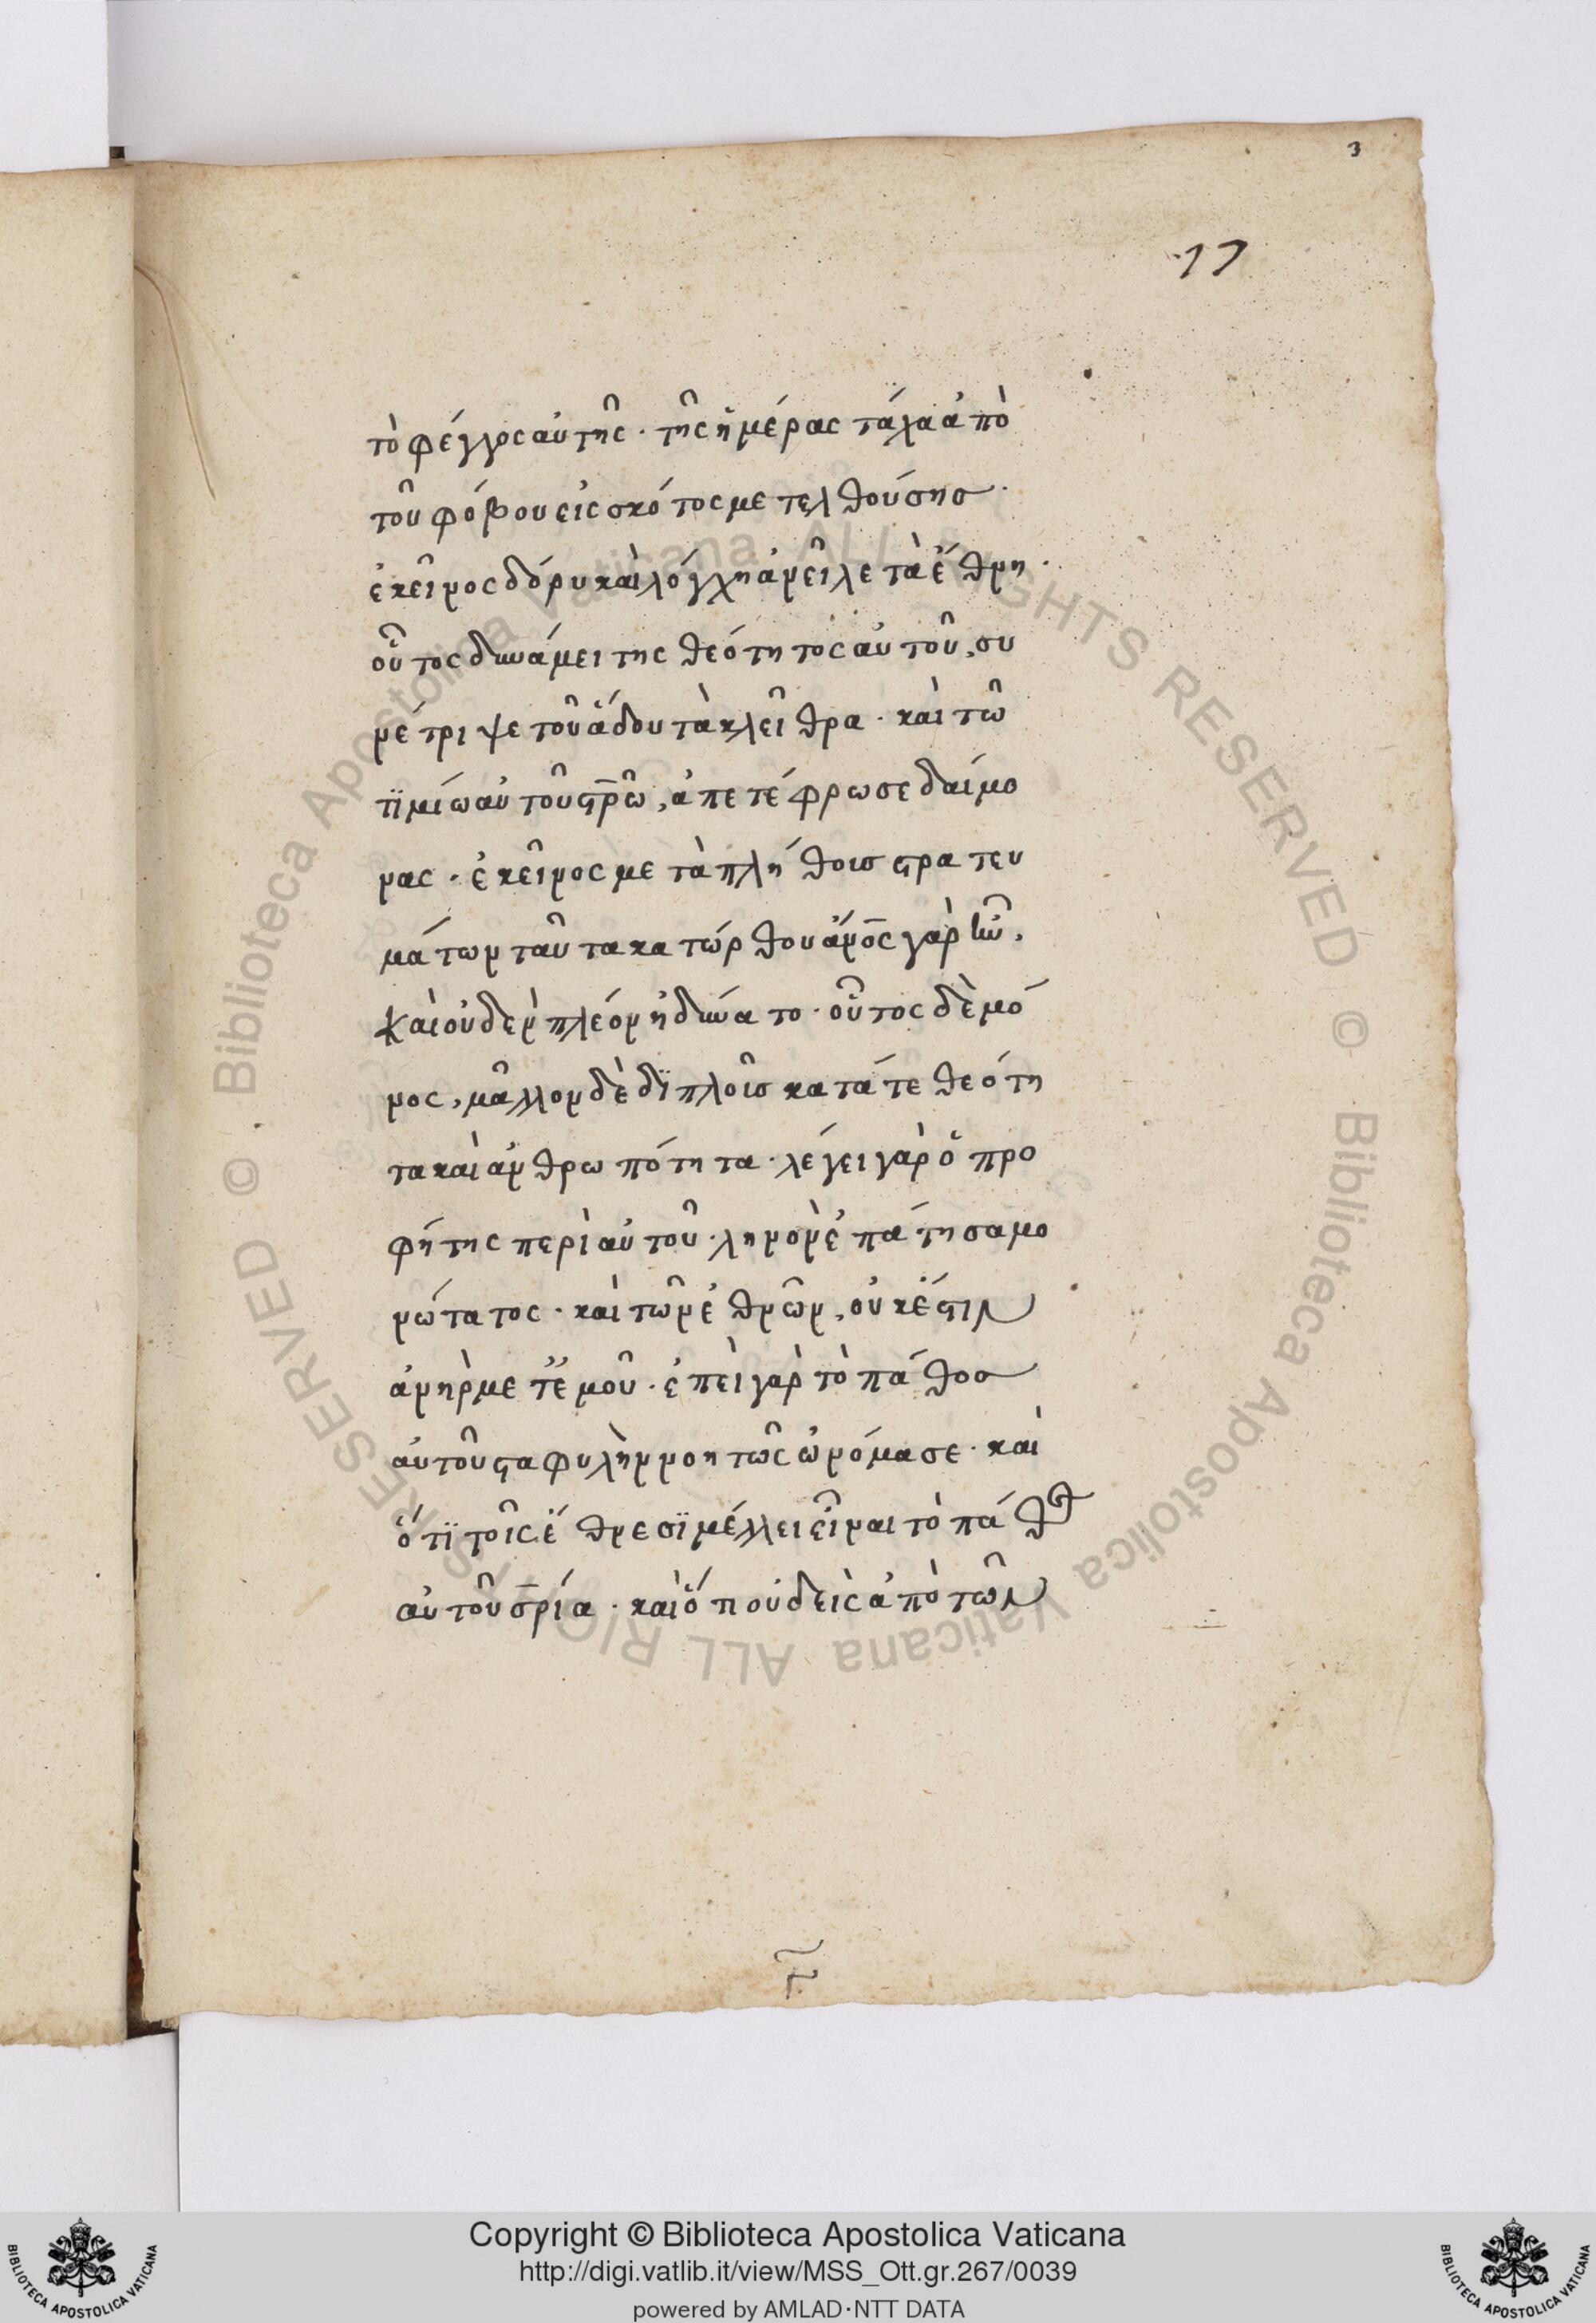 3
17
τὸ φέγγος αὐτῆς · τῆς ἡμέρας τάχα ἀπὸ
τοῦ φόβου εἰς σκότος μετελθούσης ·
ἐκεῖνος δόρυ καὶ λόγχη ἀνεῖλε τὰ ἔθνη ·
οὗτος δυνάμει της θεότητος αὐτοῦ, συ
νέτριψε τοῦ ἅδου τὰ κλεῖθρα · καὶ τῶ
τϊμίω αὐτοῦ σ̅ρῶ, ἀπετέφρωσε δαίμο
νας · ἐκεῖνος μετὰ πλήθοις στρατευ
μάτων ταῦτα κατώρθου ἄνο̅ς γὰρ ἦν,
καὶ οὐδὲν πλέον ἠδύνατο · οὗτος δὲ μό
νος, μᾶλλον δὲ δϊπλοῖς κατά τε θεότη
τα καὶ ἀνθρωπότητα · λέγει γὰρ ὁ προ
φήτης περὶ αὐτοῦ · ληνὸν ἐπάτησα μο
νώτατος · καὶ τῶν ἐθνῶν, οὐκ ἔστιν
ἀνὴρ μετ̓ ἐμοῦ · ἐπεὶ γὰρ τὸ πάθος
αὐτοῦ σταφυλὴν νοητῶς ὠνόμασε · καὶ
ὅτϊ τοῖς ἔθνεσϊ μέλλει εἶναι τὸ πάθο
αὐτοῦ σ̅ρία · καὶ ὅτι οὐδεὶς ἀπὸ τῶν
Copyright © Biblioteca Apostolica Vaticana
http://digi.vatlib.it/view/MSS_Ott.gr.267/0039
powered by AMLAD·NTT DATA
BIBLIOTECA APOSTOLICA VATICANA
BIBLIOTECA APOSTOLICA VATICANA
© Biblioteca Apostolica Vaticana ALL RIGHTS RESERVED
© Biblioteca Apostolica Vaticana ALL RIGHTS RESERVED